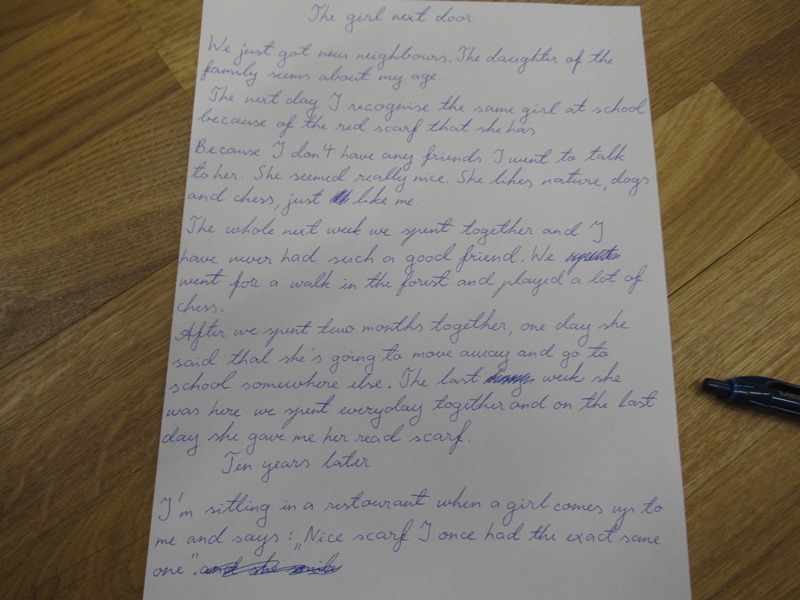 The girl next door
We just got new neighbours. The daughter of the
family seems about my age.
The next day I recognise the same girl at school
because of the red scarf that she has
Because I don't have any friends I went to talk
to her. She seemed really nice. She likes nature, dogs
and chess, just like me.
The whole next week we spent together and I
have never had such a good friend. We
went for a walk in the forest and played a lot of
chess.
After we spent two months together, one day she
said that she's going to move away and go to
school somewhere else. The last week she
was here we spent everyday together and on the last
day she gave me her read scarf.
Ten years later
I'm sitting in a restourant when a girl comes up to
me and says: „Nice scarf I once had the exact same
one". and she smiles